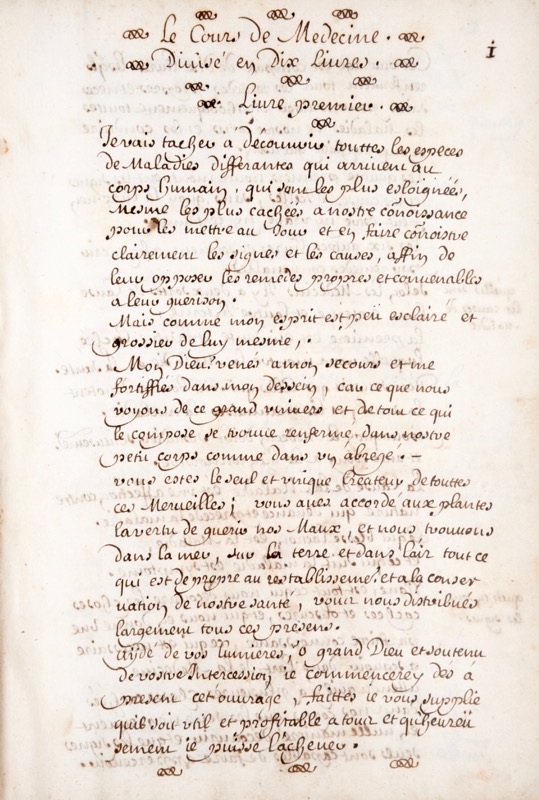 1
Le Cours de Medecine.
Divisé en Dix Livres.
Livre premier.
Je vais tacher a découvrir touttes les especes
de Maladies differantes qui arrivent au
corps humain, qui sont les plus esloignées,
mesme les plus cachées a nostre conoissance
pour les mettre au Jour et en faire conoistre
clairement les signes et les causes, affin de
leur opposer les remedes propres et convenables
a leur guerison.
Mais comme mon esprit est peu esclairé et
grossier de luy mesme,
Mon Dieu! venés a mon secours et me
fortiffiés dans mon dessein, car ce que nous
voyons de ce grand univers et de tout ce qui
le compose se trouve renfermé dans nostre
petit corps comme dans un abregé. –
vous estes le seul et unique Createur de touttes
ces Merveilles; vous avés accordé aux plantes
la vertu de guerir nos Maux, et nous trouvons
dans la mer, sur la terre et dans lair tout ce
qui est de propre au restablissemet. et a la conser
vation de nostre santé, vous nous distribués
largement tous ces presens.
aydé de vos lumieres, o grand Dieu et soutenu
de vostre Intercession ie commencerey dés á
present cet ouvrage, faittes ie vous supplie
quil soit util et profitable a tous et qu'heureu
sement ie puisse lachever.